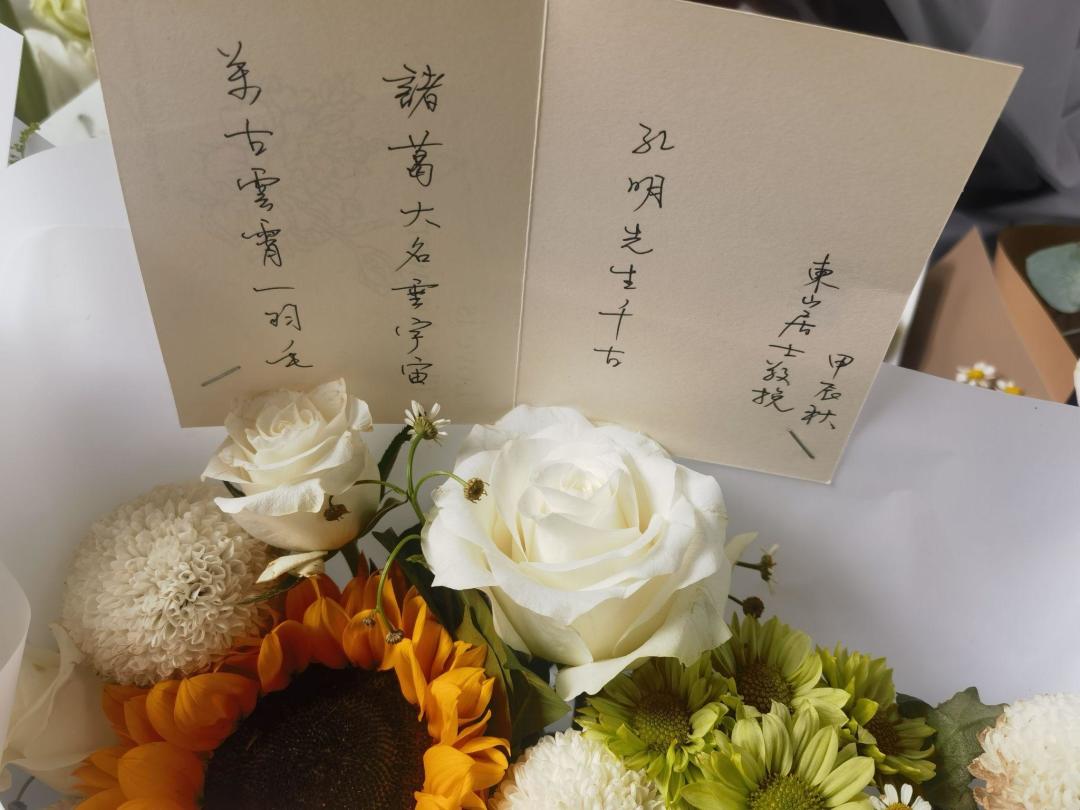 甲辰秋
東山居士敬挽
孔明先生千古
諸葛大名垂宇宙
萬古雲霄一羽毛